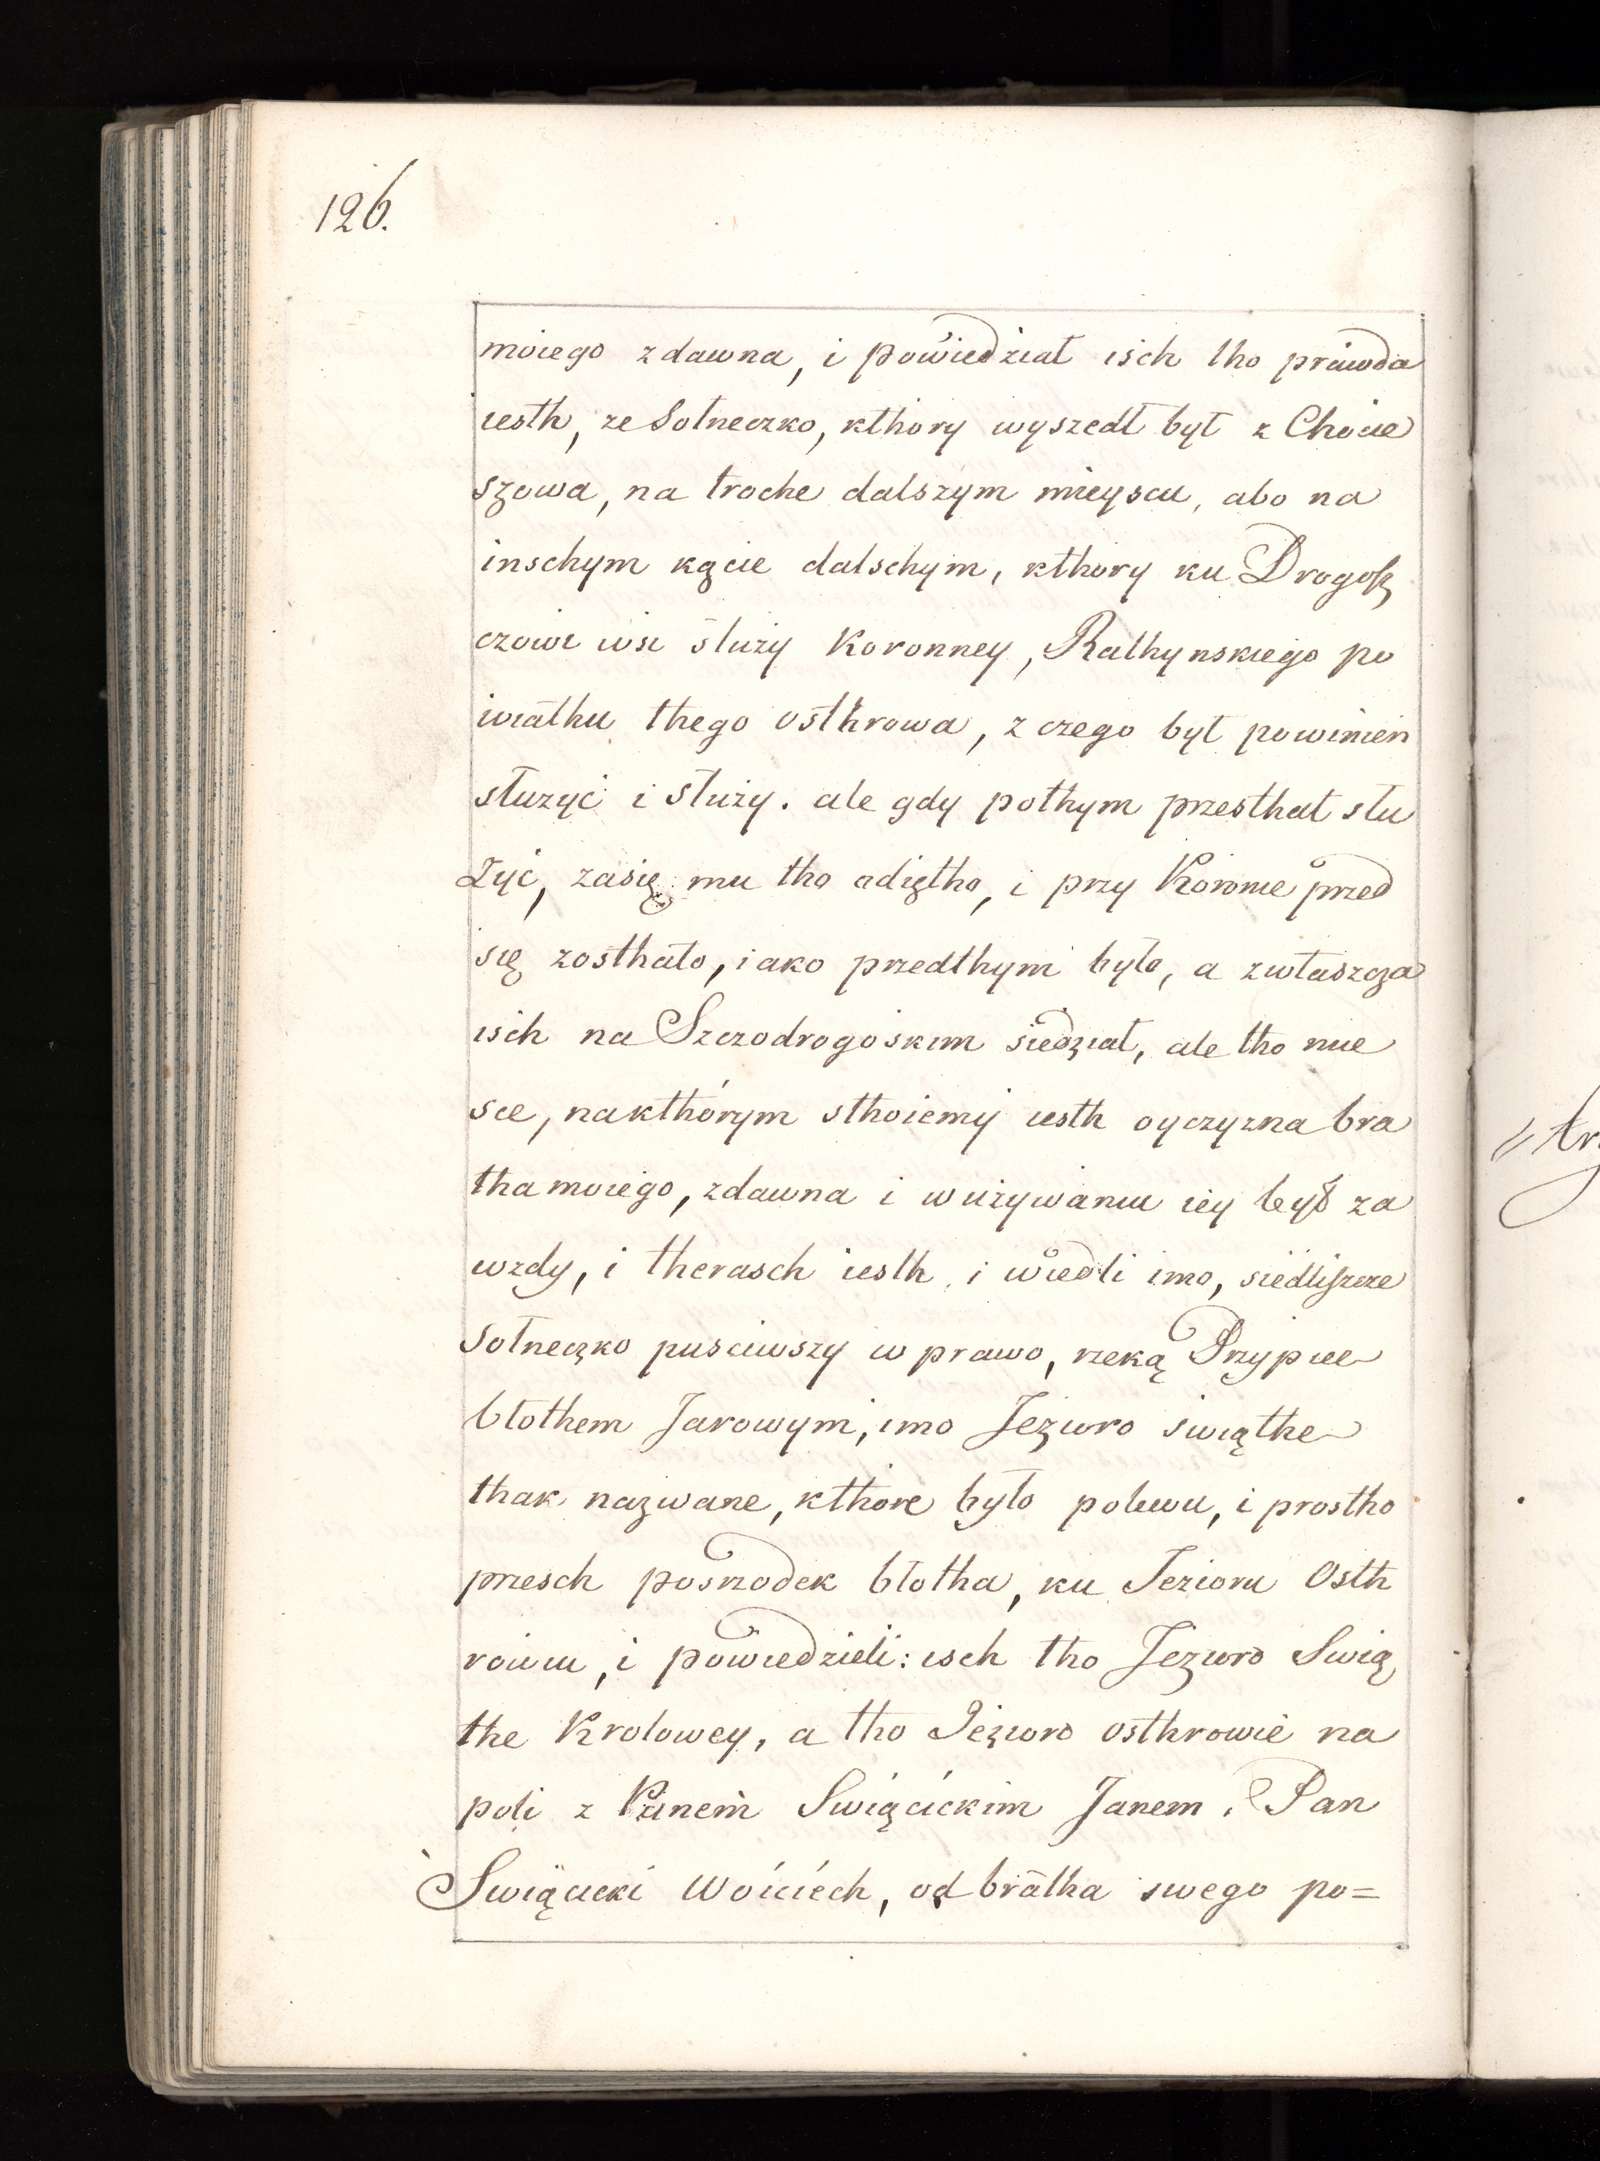 126.
moiego zdawna, i powiedział isch tho prawda
iesth, ze Sołneczko, kthory wyszedł był z Chocie
szowa, na troche dalszym mieyscu, abo na
inschym kącie dalschym, kthory ku Drogosz
czowi wsi służy Koronney, Rathynskiego po
wiathu thego osthrowa, z czego był powinien
służyć i służy. ale gdy pothym przesthał słu
żyć, zasię mu tho odiętho, i przy Koronie przed
się zosthało, iako przedthym było, a zwłaszcza
isch na Szczodrogoskim siedział, ale tho mie
sce, nakthórym sthoiemy iesth oyczyzna bra
tha moiego, zdawna i wużywaniu iey był za
wzdy, i therasch iesth, i wiedli imo, siedliszcze
Sołneczko pusciwszy w prawo, rzeką Przypiec
błothem Jarowym, imo Jezioro swiąthe
thak nazwane, kthore było polewu, i prostho
przesch poszrodek błotha, ku Jezioru Osth
rowiu, i powiedzieli: isch tho Jezioro Swią
the Krolowey, a tho Jezioro osthrowie na
poli z Panem Swiącickim Janem. Pan
Swiącicki Woiciech, od bratha swego po=
tr